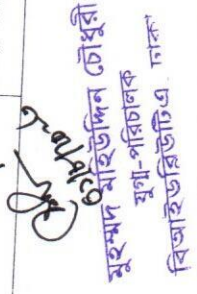 মুহম্মদ মহিউদ্দিন চৌধুরী
যুগ্ম-পরিচালক
বিআইডব্লিউটিএ, ঢাকা